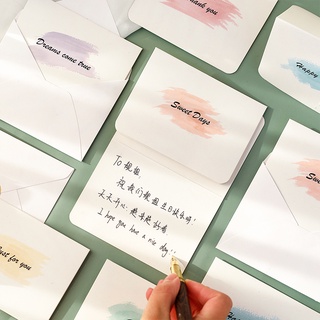 Thank you
Dreams come true
Happy
Sweet Days
To 靓靓:
祝我们靓靓生日快乐呀!
天天开心. 越来越好看
I hope you have a nice day
Just for you